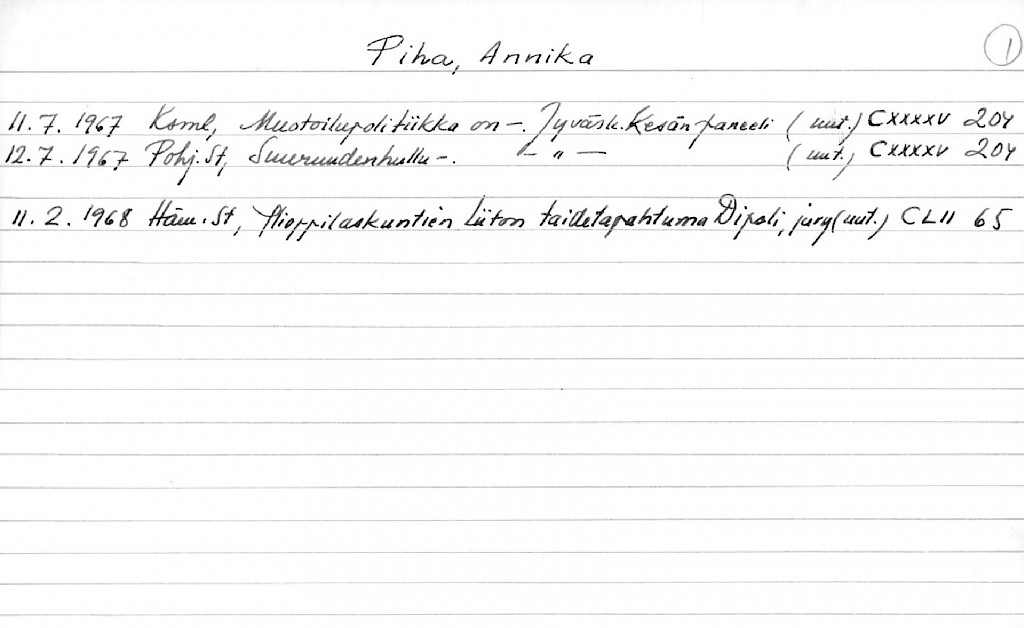 Piha, Annika
1
11.7.1967 Ksml, Muotoilupolitiikka on -. Jyväsk. Kesän paneeli (uut.) CXXXXV 204
12.7.1967 Pohj. St, Suuruudenhullu -. - " - (uut.) CXXXXV 204
11.2.1968 Häm. St, Ylioppilaskuntien Liiton taidetapahtuma Dipoli, jury (uut.) CLII 65